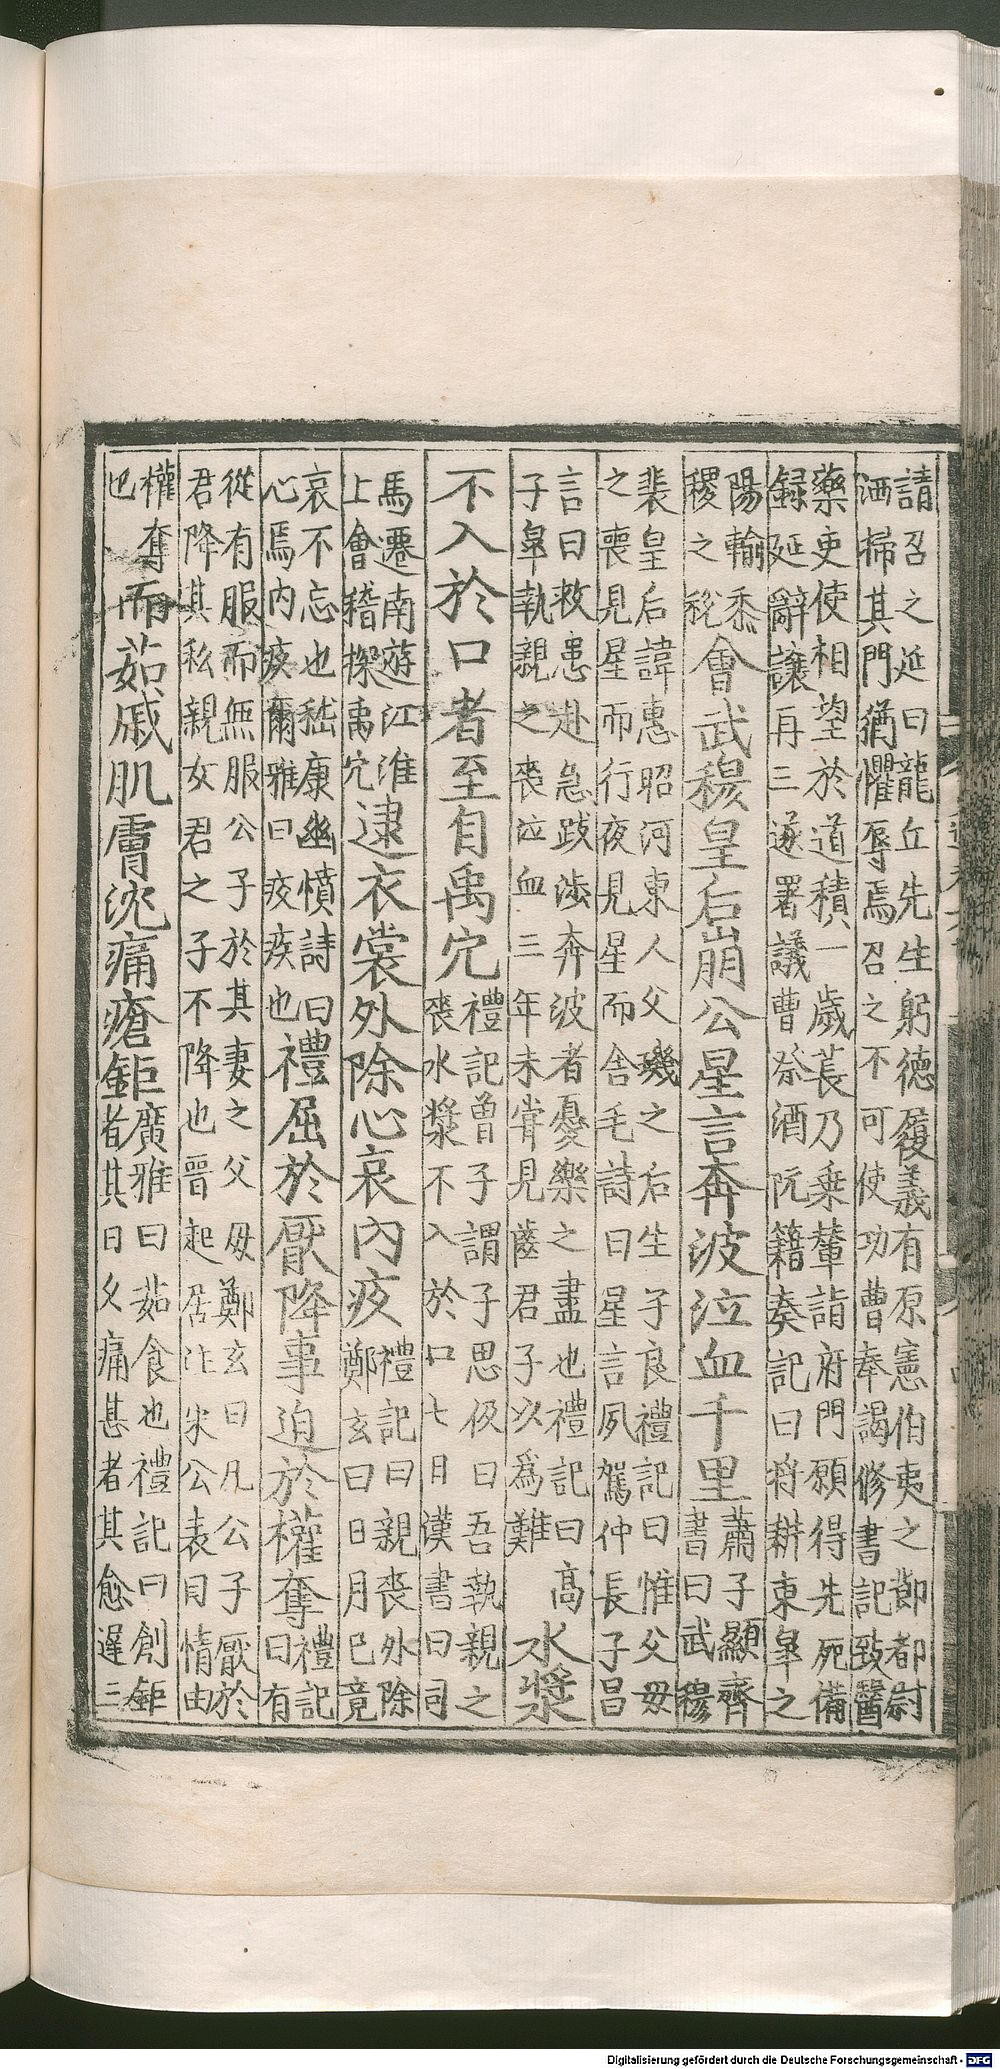 請召之延曰龍丘先生躬德履義有原憲伯夷之節都尉
洒掃其門猶懼辱焉召之不可使功曹奉謁修書記致醫
藥吏使相望於道積一歲萇乃乗輦詣府門願得先死備
録延辭讓再三遂署議曹祭酒阮籍奏記曰将耕東皐之
陽輸黍
稷之稅
會武穆皇后崩公星言奔波泣血千里
蕭子顯齊
書曰武穆
裴皇后諱惠昭河東人父璣之后生子良禮記曰惟父母
之喪見星而行夜見星而舍毛詩曰星言夙駕仲長子昌
言曰救患赴急跋渉奔波者憂樂之盡也禮記曰高
子皐執親之喪泣血三年未甞見齒君子以爲難
水漿
不入於口者至自禹穴
禮記曾子謂子思伋曰吾執親之
喪水漿不入於口七日漢書曰司
馬遷南遊江淮
上會稽探禹穴
逮衣裳外除心哀內疚
禮記曰親喪外除
鄭玄曰日月已竟
哀不忘也嵇康幽憤詩曰
心焉内疚爾雅曰疚疾也
禮屈於厭降事迫於權奪
禮記
曰有
從有服而無服公子於其妻之父母鄭玄曰凡公子厭於
君降其私親女君之子不降也晋起居注宋公表曰情由
權奪
也
而茹戚肌膚沈痛瘡鉅
廣雅曰茹食也禮記曰創鉅
者其日久痛甚者其愈遲三
Digitalisierung gefördert durch die Deutsche Forschungsgemeinschaft - DFG